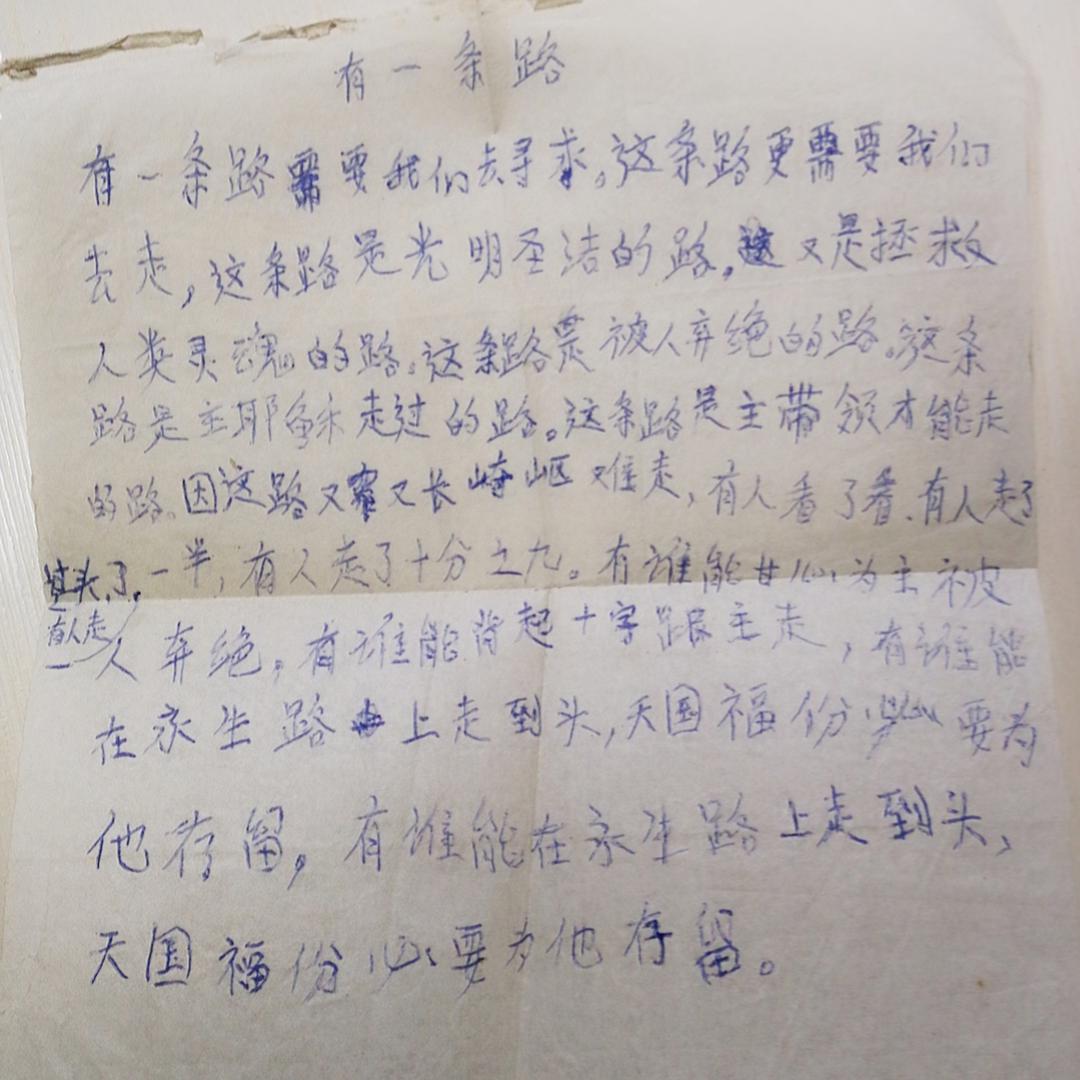 有一条路
有一条路需要我们去寻求。这条路更需要我们
去走，这条路是光明圣洁的路。又是拯救
人类灵魂的路。这条路是被人弃绝的路。这条
路是主耶稣走过的路。这条路是主带领才能走
的路。因这路又窄又长崎岖难走，有人看了看、有人走了
掉头了，一半，有人走了十分之九。有谁能甘心为主被
有人走
一人弃绝，有谁能背起十字跟主走，有谁能
在永生路上走到头，天国福份必要为
他存留，有谁能在永生路上走到头，
天国福份必要为他存留。